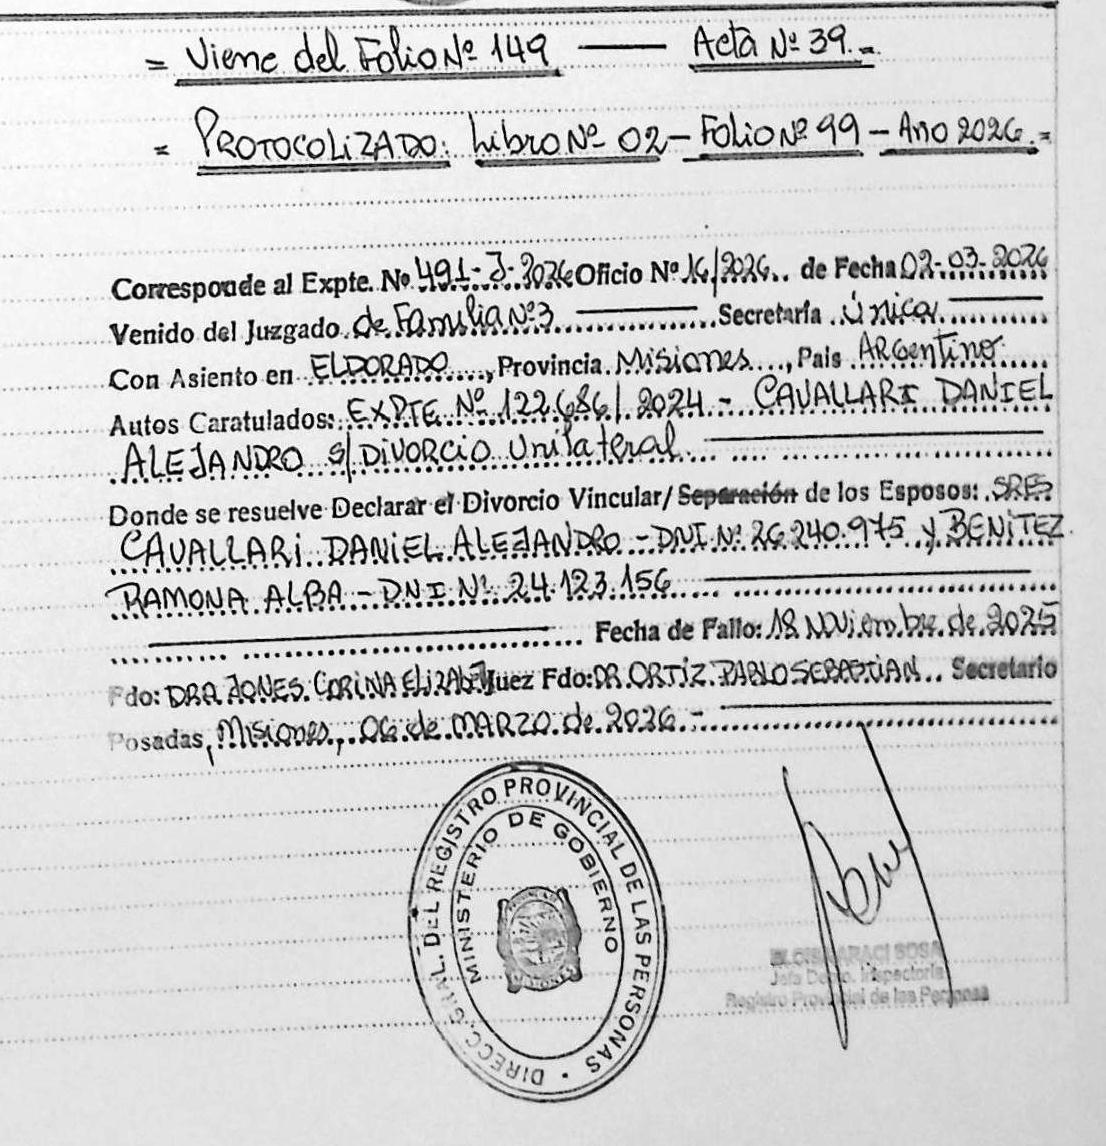 = Viene del Folio Nº 149 —— Acta Nº 39.=
= PROTOCOLIZADO: Libro Nº 02 - Folio Nº 99 - Año 2026.=
Corresponde al Expte. Nº 491-J-2026 Oficio Nº 16/2026.. de Fecha 02-03-2026
Venido del Juzgado de Familia Nº 3 —— Secretaría Única ——
Con Asiento en ELDORADO, Provincia Misiones, Pais ARgentino
Autos Caratulados: EXPTE Nº 122.686/2024 - CAVALLARI DANIEL
ALEJANDRO s/ DIVORCIO Unilateral ——
Donde se resuelve Declarar el Divorcio Vincular/ Separación de los Esposos: SRES
CAVALLARI DANIEL ALEJANDRO - DNI Nº 26.240.975 y BENITEZ
RAMONA ALBA - DNI Nº 24.123.156 ——
—— Fecha de Fallo: 18 Noviembre de 2025
Fdo: DRA JONES CORINA ELIZABET Juez Fdo: DR. ORTIZ PABLO SEBASTIAN.. Secretario
Posadas, Misiones, 06 de MARZO de 2026.- ——
DIRECC. GRAL. DEL REGISTRO PROVINCIAL DE LAS PERSONAS
MINISTERIO DE GOBIERNO
SOSA
Jefa Dpto. Inspectoria
Registro Provincial de las Personas